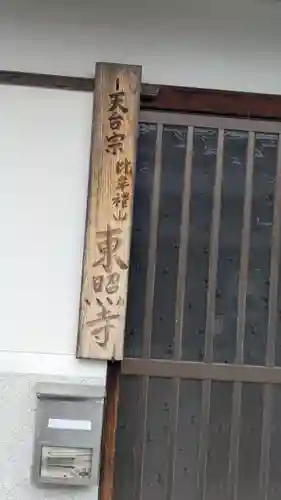 天台宗
比牟禮山
東照寺